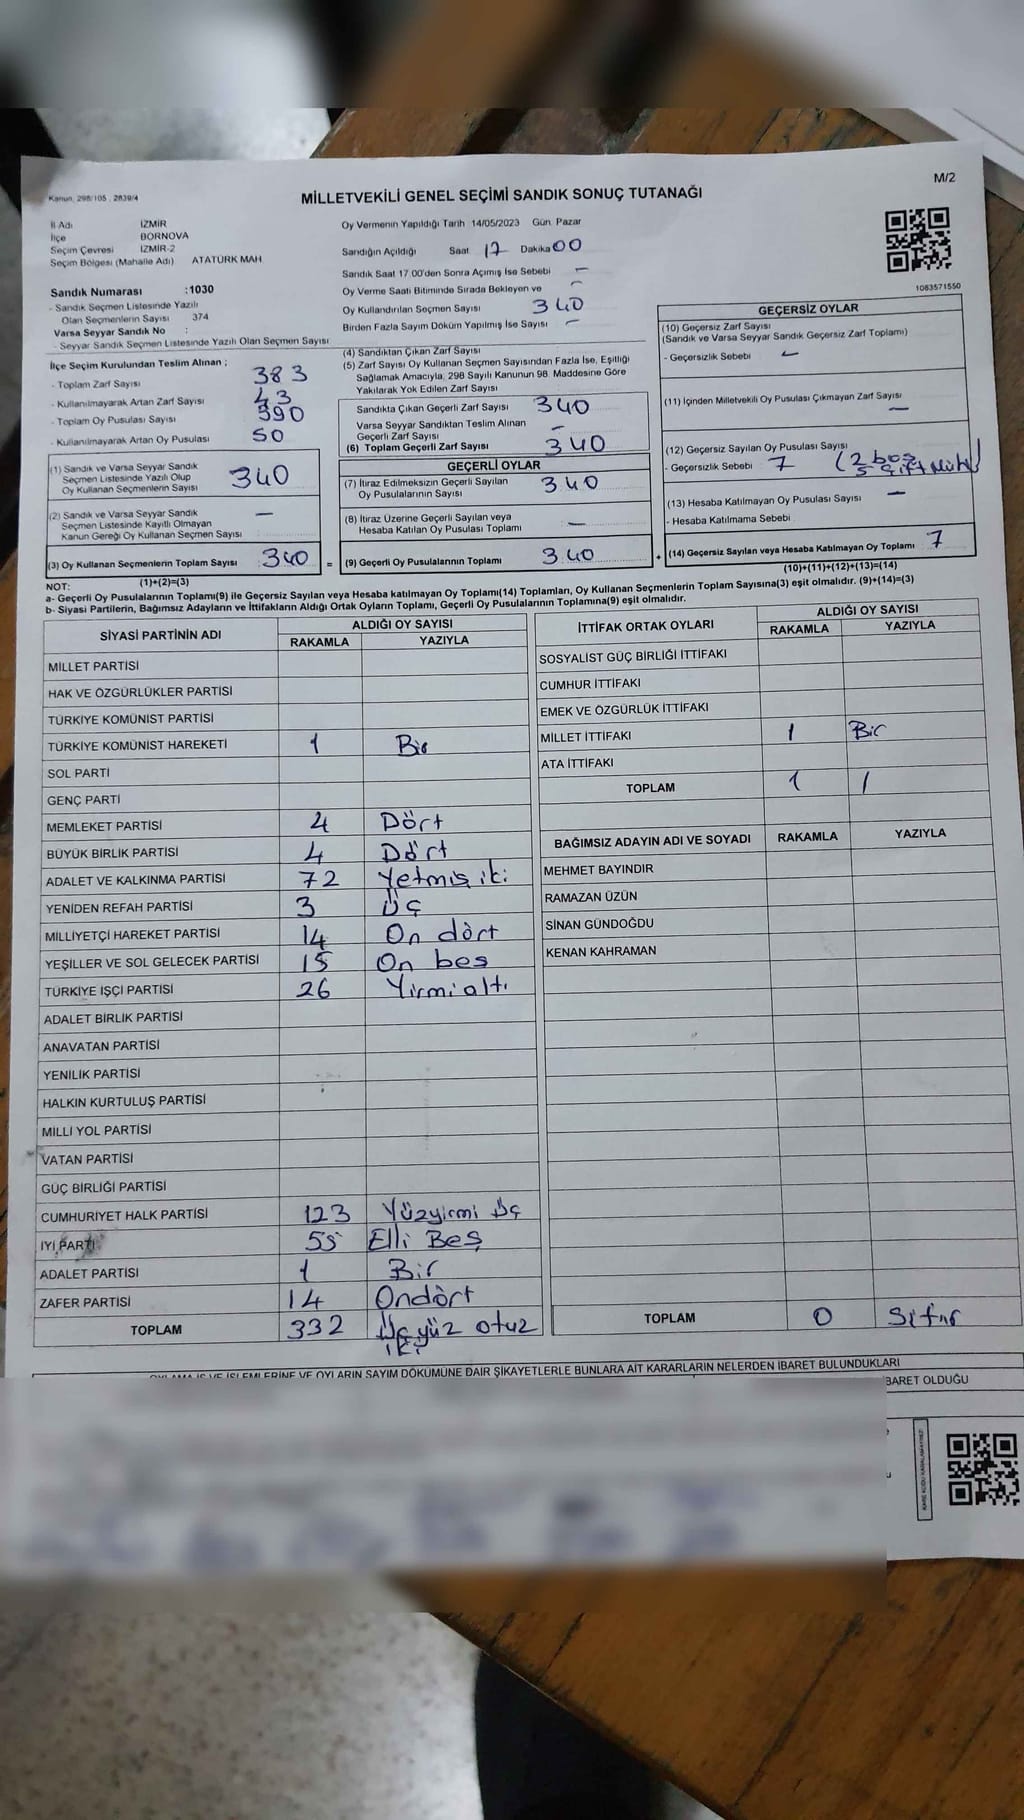 Kanun, 298/105 , 2839/4
M/2
MİLLETVEKİLİ GENEL SEÇİMİ SANDIK SONUÇ TUTANAĞI
İl Adı İZMİR
İlçe BORNOVA
Seçim Çevresi İZMİR-2
Seçim Bölgesi (Mahalle Adı) ATATÜRK MAH
Sandık Numarası :1030
- Sandık Seçmen Listesinde Yazılı
Olan Seçmenlerin Sayısı 374
Varsa Seyyar Sandık No :
- Seyyar Sandık Seçmen Listesinde Yazılı Olan Seçmen Sayısı
Oy Vermenin Yapıldığı Tarih 14/05/2023 Gün Pazar
Sandığın Açıldığı Saat 17 Dakika 00
Sandık Saat 17.00'den Sonra Açımış İse Sebebi –
Oy Verme Saati Bitiminde Sırada Bekleyen ve –
Oy Kullandırılan Seçmen Sayısı 340
Birden Fazla Sayım Döküm Yapılmış İse Sayısı –
1083571550
İlçe Seçim Kurulundan Teslim Alınan ;
- Toplam Zarf Sayısı 383
- Kullanılmayarak Artan Zarf Sayısı 43
- Toplam Oy Pusulası Sayısı 390
- Kullanılmayarak Artan Oy Pusulası 50
(1) Sandık ve Varsa Seyyar Sandık
Seçmen Listesinde Yazılı Olup
Oy Kullanan Seçmenlerin Sayısı 340
(2) Sandık ve Varsa Seyyar Sandık
Seçmen Listesinde Kayıtlı Olmayan
Kanun Gereği Oy Kullanan Seçmen Sayısı –
(3) Oy Kullanan Seçmenlerin Toplam Sayısı 340 =
(1)+(2)=(3)
(4) Sandıktan Çıkan Zarf Sayısı
(5) Zarf Sayısı Oy Kullanan Seçmen Sayısından Fazla İse, Eşitliği
Sağlamak Amacıyla, 298 Sayılı Kanunun 98. Maddesine Göre
Yakılarak Yok Edilen Zarf Sayısı
Sandıkta Çıkan Geçerli Zarf Sayısı 340
Varsa Seyyar Sandıktan Teslim Alınan
Geçerli Zarf Sayısı –
(6) Toplam Geçerli Zarf Sayısı 340
GEÇERLİ OYLAR
(7) İtiraz Edilmeksizin Geçerli Sayılan
Oy Pusulalarının Sayısı 340
(8) İtiraz Üzerine Geçerli Sayılan veya
Hesaba Katılan Oy Pusulası Toplamı –
(9) Geçerli Oy Pusulalarının Toplamı 340 +
GEÇERSİZ OYLAR
(10) Geçersiz Zarf Sayısı
(Sandık ve Varsa Seyyar Sandık Geçersiz Zarf Toplamı)
- Geçersizlik Sebebi –
(11) İçinden Milletvekili Oy Pusulası Çıkmayan Zarf Sayısı –
(12) Geçersiz Sayılan Oy Pusulası Sayısı
- Geçersizlik Sebebi 7 (2 boş
5 çift Mühür)
(13) Hesaba Katılmayan Oy Pusulası Sayısı –
- Hesaba Katılmama Sebebi
(14) Geçersiz Sayılan veya Hesaba Katılmayan Oy Toplamı 7
(10)+(11)+(12)+(13)=(14)
NOT:
a- Geçerli Oy Pusulalarının Toplamı(9) ile Geçersiz Sayılan veya Hesaba katılmayan Oy Toplamı(14) Toplamları, Oy Kullanan Seçmenlerin Toplam Sayısına(3) eşit olmalıdır. (9)+(14)=(3)
b- Siyasi Partilerin, Bağımsız Adayların ve İttifakların Aldığı Ortak Oyların Toplamı, Geçerli Oy Pusulalarının Toplamına(9) eşit olmalıdır.
SİYASİ PARTİNİN ADI ALDIĞI OY SAYISI
RAKAMLA YAZIYLA
MİLLET PARTİSİ
HAK VE ÖZGÜRLÜKLER PARTİSİ
TÜRKİYE KOMÜNİST PARTİSİ
TÜRKİYE KOMÜNİST HAREKETİ 1 Bir
SOL PARTİ
GENÇ PARTİ
MEMLEKET PARTİSİ 4 Dört
BÜYÜK BİRLİK PARTİSİ 4 Dört
ADALET VE KALKINMA PARTİSİ 72 Yetmiş iki
YENİDEN REFAH PARTİSİ 3 Üç
MİLLİYETÇİ HAREKET PARTİSİ 14 On dört
YEŞİLLER VE SOL GELECEK PARTİSİ 15 On beş
TÜRKİYE İŞÇİ PARTİSİ 26 Yirmialtı
ADALET BİRLİK PARTİSİ
ANAVATAN PARTİSİ
YENİLİK PARTİSİ
HALKIN KURTULUŞ PARTİSİ
MİLLİ YOL PARTİSİ
VATAN PARTİSİ
GÜÇ BİRLİĞİ PARTİSİ
CUMHURİYET HALK PARTİSİ 123 Yüzyirmi Üç
İYİ PARTİ 55 Elli Beş
ADALET PARTİSİ 1 Bir
ZAFER PARTİSİ 14 Ondört
TOPLAM 332 Üç yüz otuz
iki
İTTİFAK ORTAK OYLARI ALDIĞI OY SAYISI
RAKAMLA YAZIYLA
SOSYALİST GÜÇ BİRLİĞİ İTTİFAKI
CUMHUR İTTİFAKI
EMEK VE ÖZGÜRLÜK İTTİFAKI
MİLLET İTTİFAKI 1 Bir
ATA İTTİFAKI
TOPLAM 1 1
BAĞIMSIZ ADAYIN ADI VE SOYADI RAKAMLA YAZIYLA
MEHMET BAYINDIR
RAMAZAN ÜZÜN
SİNAN GÜNDOĞDU
KENAN KAHRAMAN
TOPLAM 0 Sıfır
İŞLEMLERİNE VE OYLARIN SAYIM DÖKÜMÜNE DAİR ŞİKAYETLERLE BUNLARA AİT KARARLARIN NELERDEN İBARET BULUNDUKLARI
BARET OLDUĞU